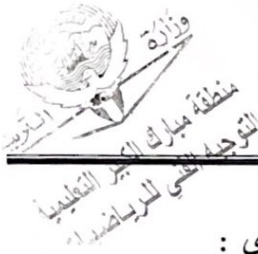 وزارة
التربية
منطقة مبارك الكبير التعليمية
التوجيه الفني للرياضيات
ى :